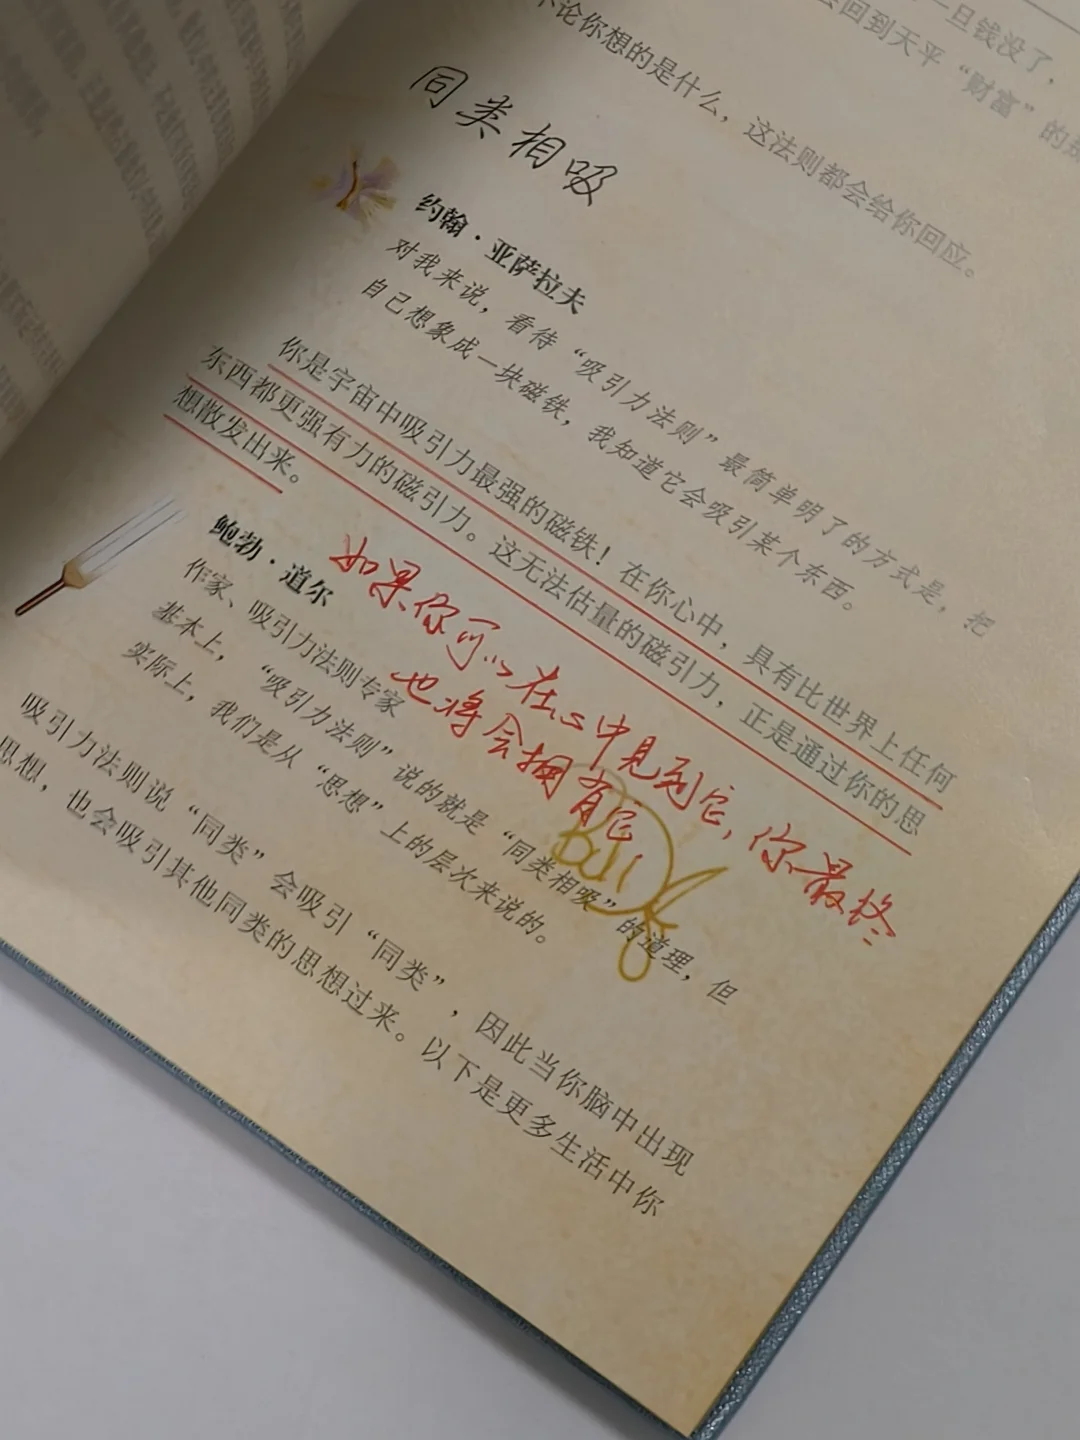 一旦钱没了，
会回到天平“财富”的
不论你想的是什么，这法则都会给你回应。
同类相吸
约翰·亚萨拉夫
对我来说，看待“吸引力法则”最简单明了的方式是，把
自己想象成一块磁铁，我知道它会吸引某个东西。
你是宇宙中吸引力最强的磁铁！在你心中，具有比世界上任何
东西都更强有力的磁引力。这无法估量的磁引力，正是通过你的思
想散发出来。
如果你可以在心中见到它，你最终
也将会拥有它。
鲍勃·道尔
作家、吸引力法则专家
基本上，“吸引力法则”说的就是“同类相吸”的道理，但
实际上，我们是从“思想”上的层次来说的。
吸引力法则说“同类”会吸引“同类”，因此当你脑中出现
思想，也会吸引其他同类的思想过来。以下是更多生活中你